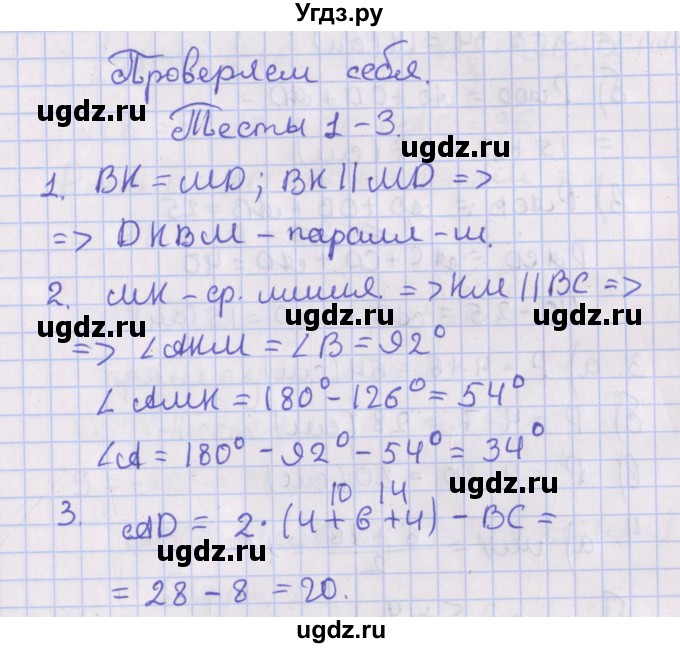 Угдз.ру
Проверяем себя.
ugdz.ru
Тесты 1-3.
ugdz.ru
1. BK = MD; BK || MD =>
=> DKBM - паралл-м.
2. MK - ср. линия. => KM || BC =>
ugdz.ru ugdz.ru
=> ∠AKM = ∠B = 92°
∠AMK = 180° - 126° = 54°
ugdz.ru
∠A = 180° - 92° - 54° = 34°
ugdz.ru
10 14
3. AD = 2·(4+6+4) - BC =
ugdz.ru
= 28 - 8 = 20.
ugdz.ru